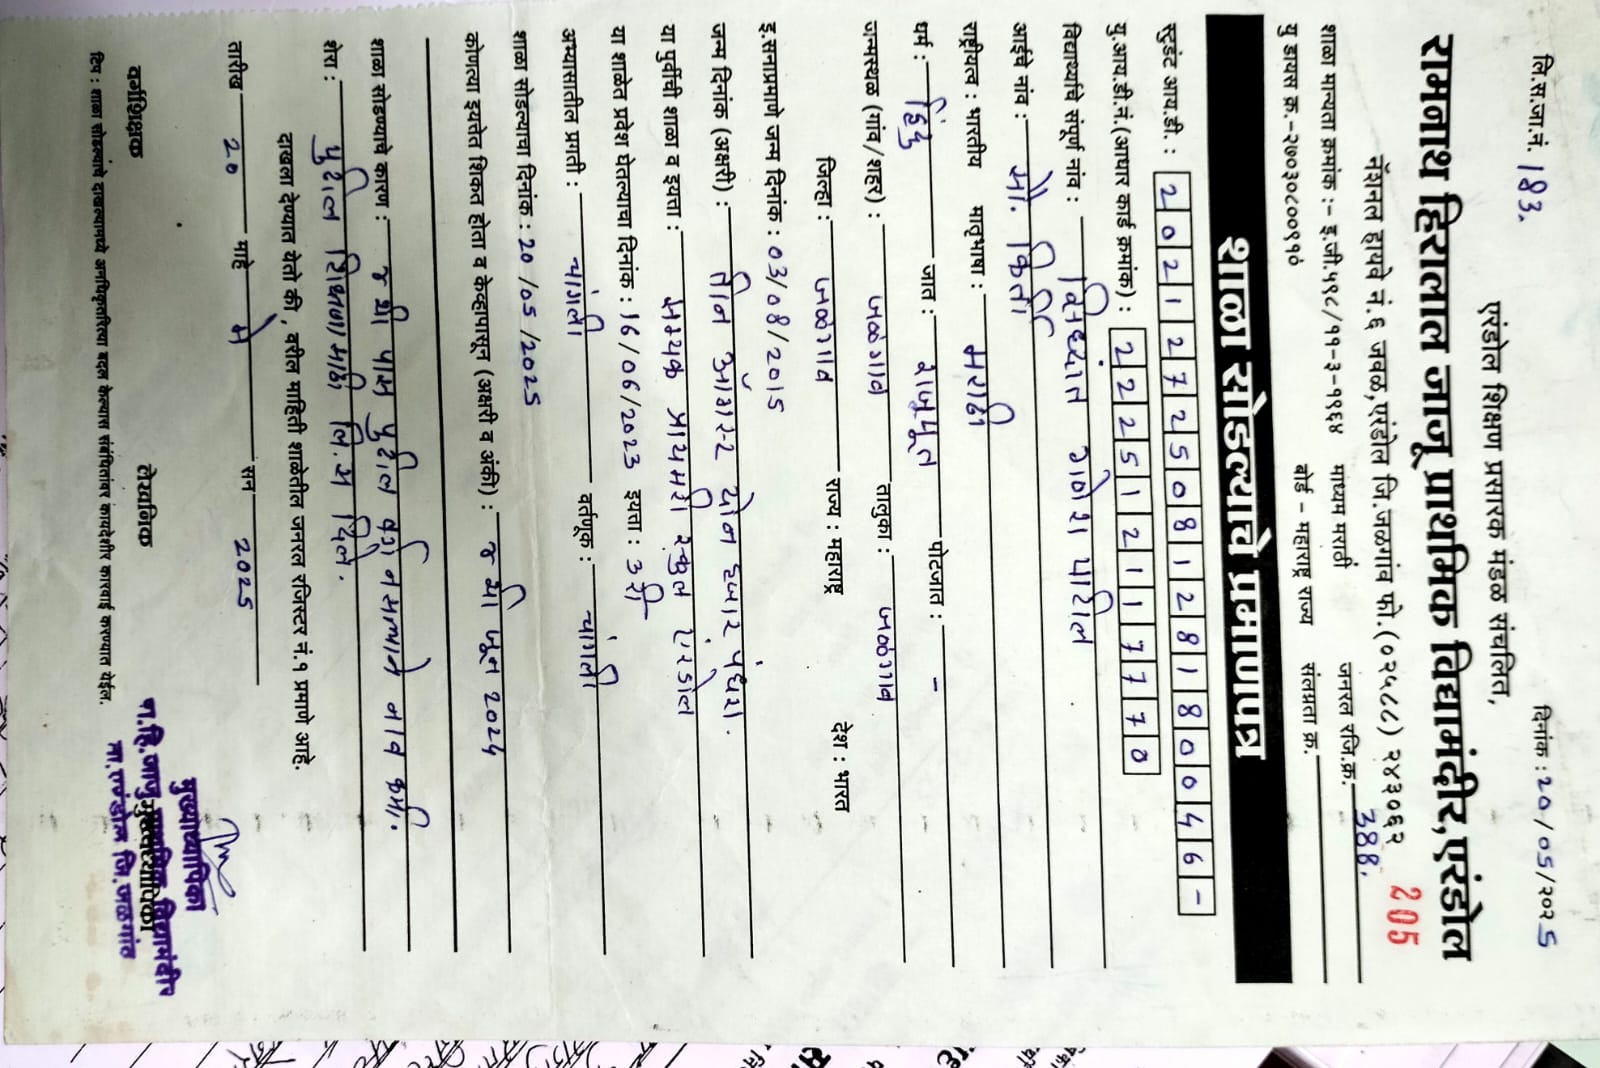 लि.स.जा.नं. 183. दिनांक : 20/05/२०२5
एरंडोल शिक्षण प्रसारक मंडळ संचलित,
रामनाथ हिरालाल जाजू प्राथमिक विद्यामंदीर, एरंडोल
नॅशनल हायवे नं.६ जवळ,एरंडोल जि.जळगांव फो.(०२५८८) २४३०६२ 205
शाळा मान्यता क्रमांक :- इ.जी.५९८/११-३-१९६४ माध्यम मराठी जनरल रजि.क्र. 388.
यु डायस क्र.-२७०३०८००९१० बोर्ड - महाराष्ट्र राज्य संलग्नता क्र.
शाळा सोडल्याचे प्रमाणपत्र
स्टुडंट आय.डी. : 2 0 2 1 2 7 2 5 0 8 1 2 8 1 8 0 0 4 6 -
यु.आय.डी.नं.(आधार कार्ड क्रमांक) : 2 2 2 5 1 2 1 1 7 7 7 0
विद्यार्थ्याचे संपूर्ण नांव : गणेश पाटील
आईचे नांव : सौ. किर्ती
राष्ट्रीयत्व : भारतीय मातृभाषा : मराठी
धर्म : हिंदु जात : राजपूत पोटजात : -
जन्मस्थळ (गांव/शहर) : जळगाव तालुका : जळगाव
जिल्हा : जळगाव राज्य : महाराष्ट्र देश : भारत
इ.सनाप्रमाणे जन्म दिनांक : 03/08/2015
जन्म दिनांक (अक्षरी) : तीन ऑगस्ट दोन हजार पंधरा.
या पुर्वीची शाळा व इयत्ता : सम्यक प्रायमरी स्कुल एरंडोल
या शाळेत प्रवेश घेतल्याचा दिनांक : 16/06/2023 इयत्ता : 3री
अभ्यासातील प्रगती : चांगली वर्तणूक : चांगली
शाळा सोडल्याचा दिनांक : 20/05/2025
कोणत्या इयत्तेत शिकत होता व केव्हापासून (अक्षरी व अंकी) : 4थी जून 2024
शाळा सोडण्याचे कारण : 4थी पास पुढील वर्ग नसल्याने नाव कमी.
शेरा : पुढील शिक्षणासाठी लि.स दिले.
दाखला देण्यात येतो की, वरील माहिती शाळेतील जनरल रजिस्टर नं.१ प्रमाणे आहे.
तारीख 20 माहे मे सन 2025
मुख्याध्यापिका
वर्गशिक्षक लेखनिक मुख्याध्यापिका
रा.हि.जाजु प्राथमिक विद्यामंदीर
ता.एरंडोल जि.जळगांव
टिप : शाळा सोडल्याचे दाखल्यामध्ये अनधिकृतरित्या बदल केल्यास संबंधितांवर कायदेशीर कारवाई करण्यात येईल.